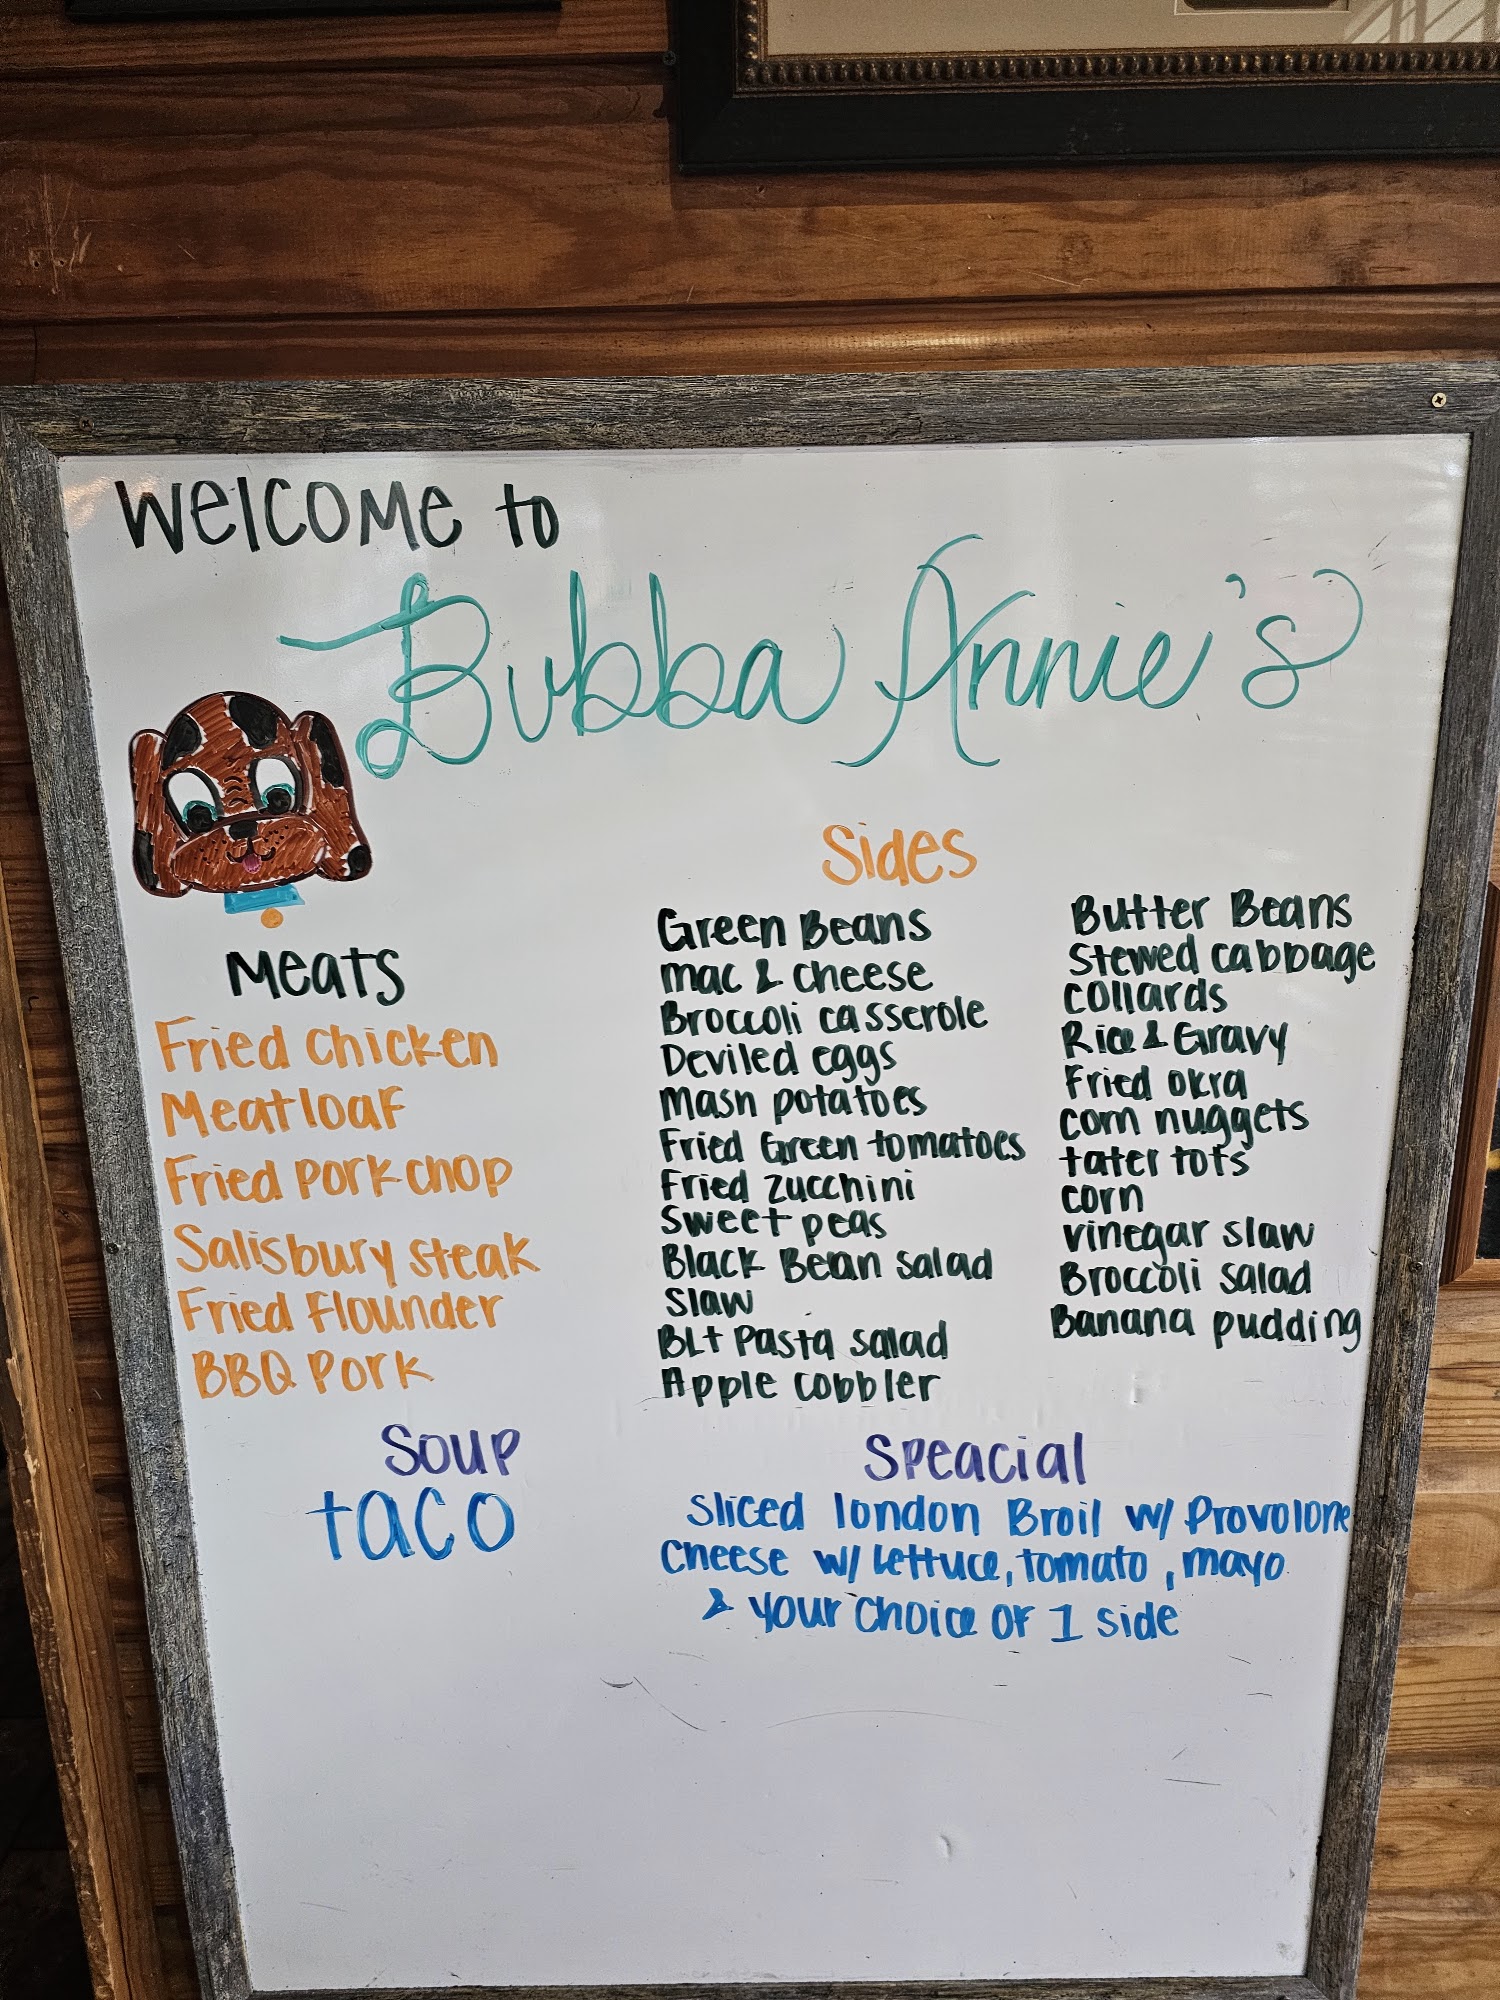 Welcome to
Bubba Annie's
Meats
Fried chicken
Meatloaf
Fried porkchop
Salisbury steak
Fried Flounder
BBQ Pork
Sides
Green Beans
mac & cheese
Broccoli casserole
Deviled eggs
Mash potatoes
Fried Green tomatoes
Fried zucchini
sweet peas
Black Bean salad
slaw
BLt Pasta salad
Apple cobbler
Butter Beans
stewed cabbage
collards
Rice & Gravy
Fried okra
corn nuggets
tater tots
corn
vinegar slaw
Broccoli salad
Banana pudding
Soup
taco
Speacial
sliced london Broil w/ Provolone
Cheese w/ Lettuce, tomato, mayo
& your choice of 1 side